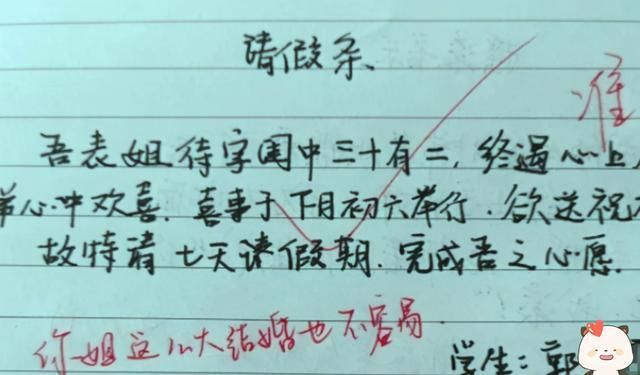 请假条
准
吾表姐待字闺中三十有二，终遇心上
弟心中欢喜．喜事于下月初六举行．欲送祝
故特请七天课假期．完成吾之心愿．
你姐这么大结婚也不容易．
学生：郭